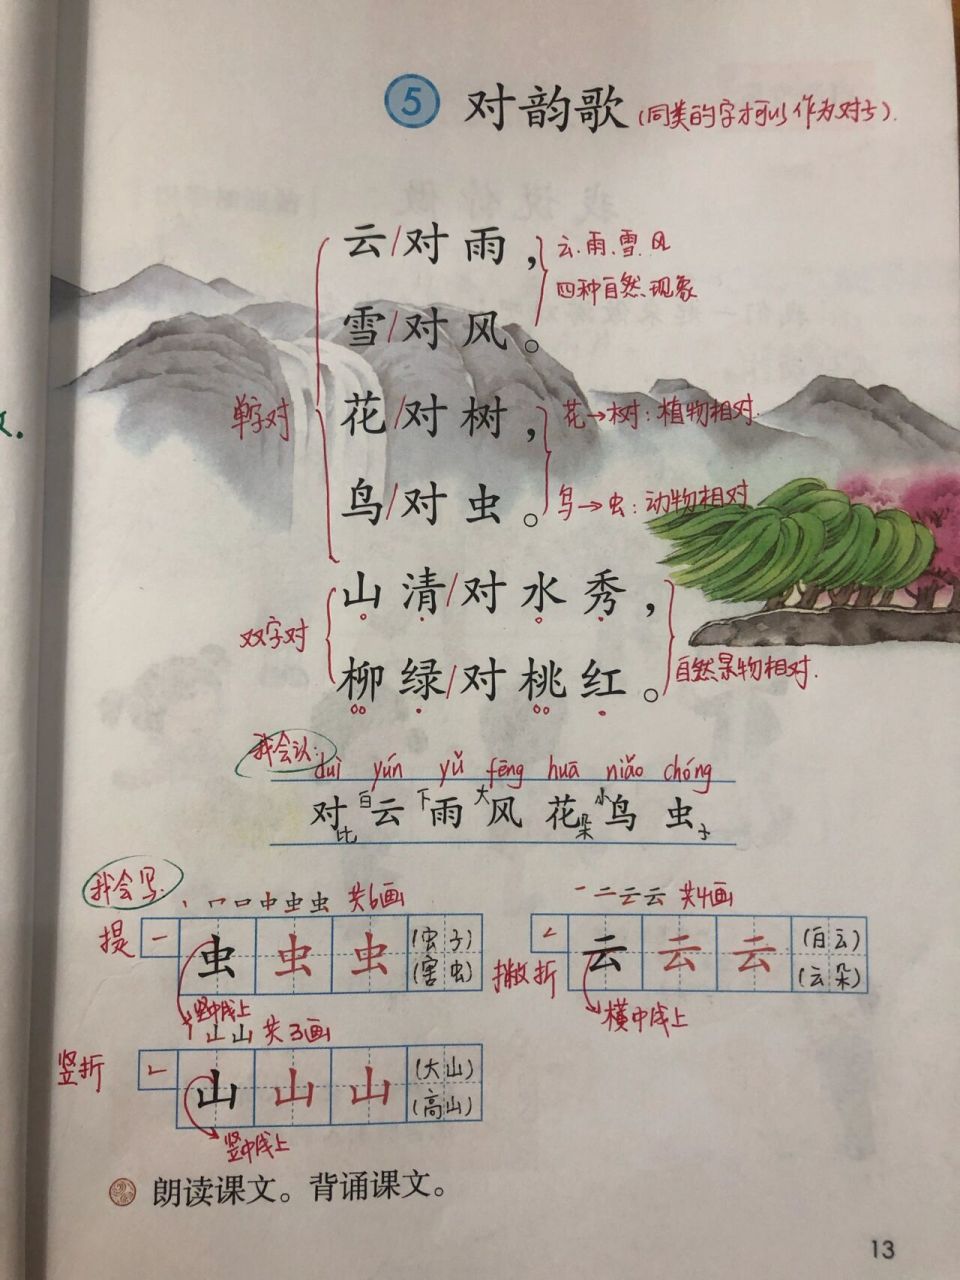 5 对韵歌(同类的字才可以作为对子).
云/对雨， 云、雨、雪、风
四种自然现象
雪/对风。
单字对 花/对树， 花→树：植物相对.
鸟/对虫。 鸟→虫：动物相对
山清/对水秀，
双字对
柳绿/对桃红。 自然景物相对.
我会认：
duì yún yǔ fēng huā niǎo chóng
对比 白云 下雨 大风 花朵 小鸟 虫子
我会写.
虫 共6画 云 共4画
提 ㇀ 虫 虫 虫 (虫子) (害虫)
撇折 ㇜ 云 云 云 (白云) (云朵)
竖中线上 横中线上
山 共3画
竖折 ㇗ 山 山 山 (大山) (高山)
竖中线上
朗读课文。背诵课文。
13